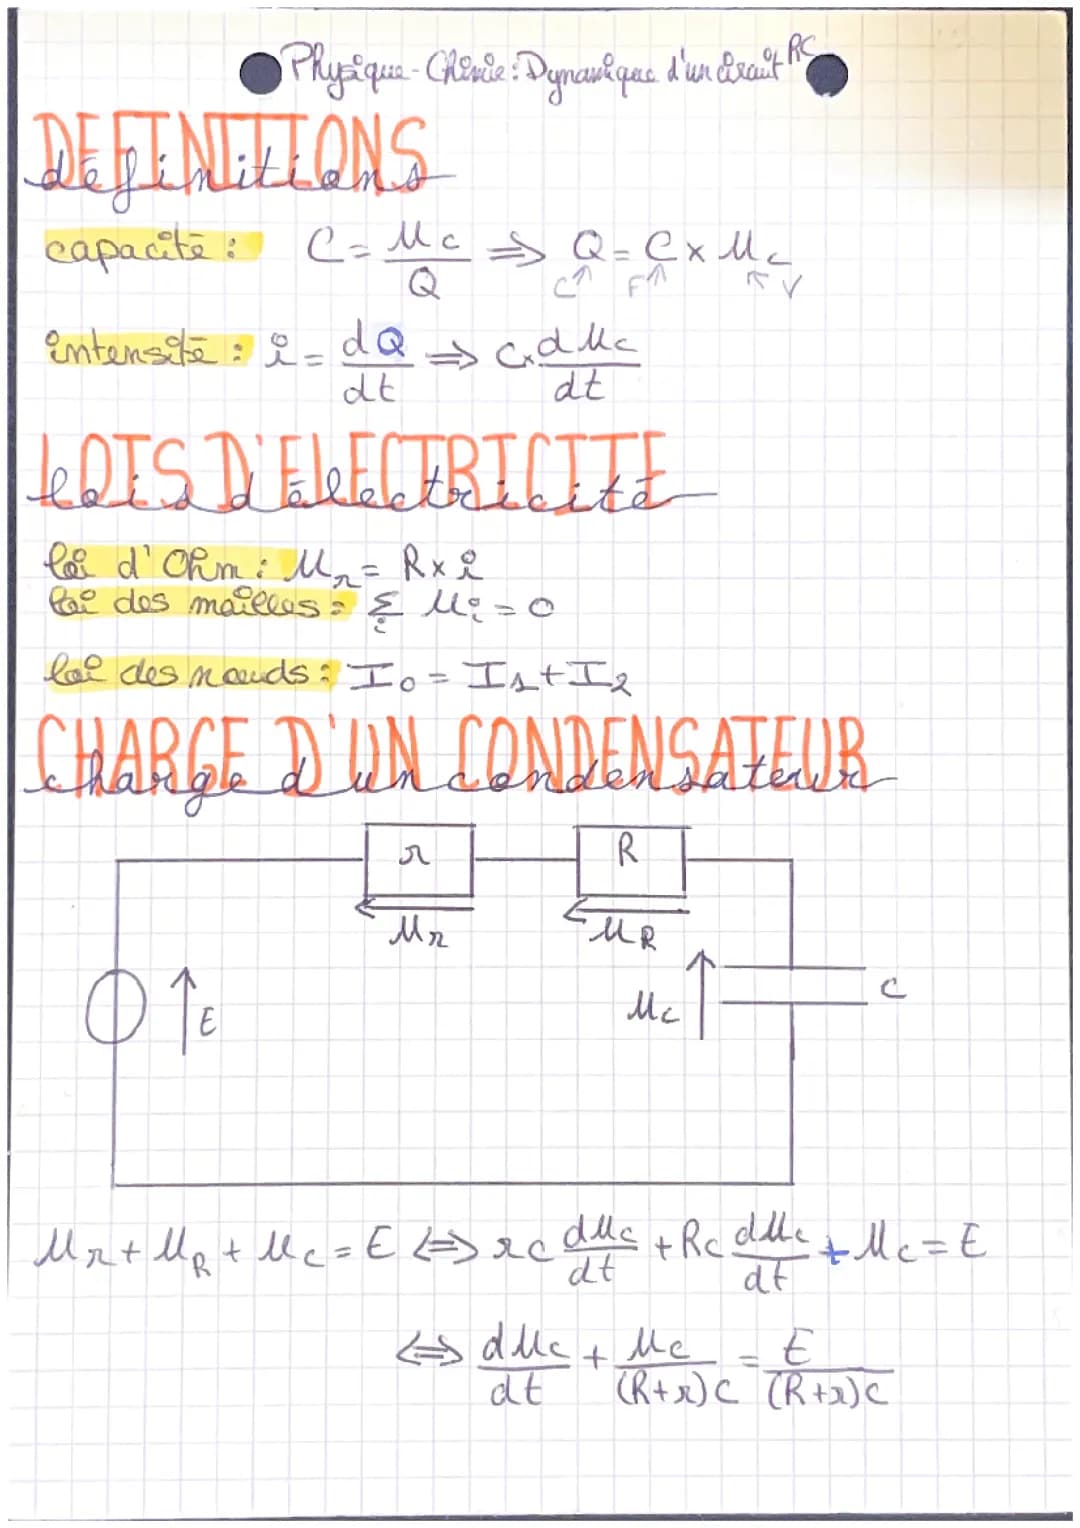 Physique-Chimie : Dynamique d'un circuit RC
DEFINITIONS
définitions
capacité : C = Uc / Q ⇒ Q = C x Uc
C F V
intensité : i = dQ / dt ⇒ C x dUc / dt
LOIS D'ELECTRICITE
lois d'électricité
loi d'Ohm : Ur = R x i
loi des mailles : Σi Ui = 0
loi des nœuds : I0 = I1 + I2
CHARGE D'UN CONDENSATEUR
charge d'un condensateur
r R
Ur UR
E Uc C
Ur + UR + Uc = E ⇔ rC dUc/dt + RC dUc/dt + Uc = E
⇔ dUc/dt + Uc/(R+r)C = E/(R+r)C